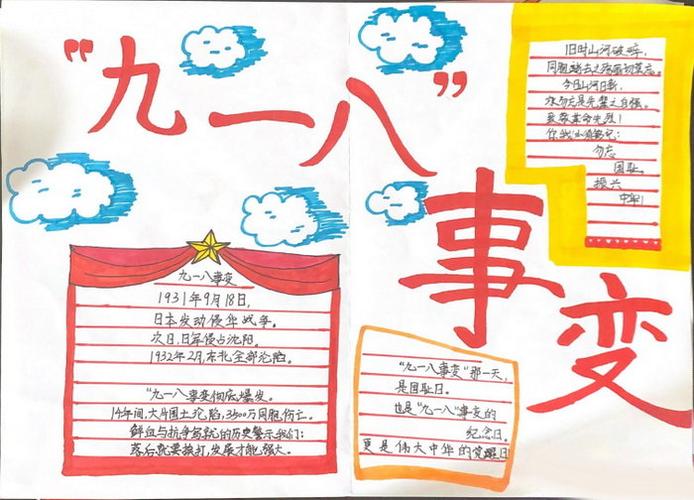 “九一八”
事变
旧时山河破碎，
同胞
今日山河日新，
亦勿忘是先辈之自强。
致敬革命先烈！
你我必须铭记：
勿忘
国耻，
振兴
中华！
九一八事变
1931年9月18日，
日本发动侵华战争。
次日，日军侵占沈阳。
1932年2月，东北全部沦陷。
“九一八事变彻底爆发。
14年间，大片国土沦陷，3500万同胞伤亡。
鲜血与抗争写就的历史警示我们：
落后就要挨打，发展才能强大。
“九一八事变”那一天，
是国耻日。
也是“九一八”事变的
纪念日。
更是伟大中华的觉醒日